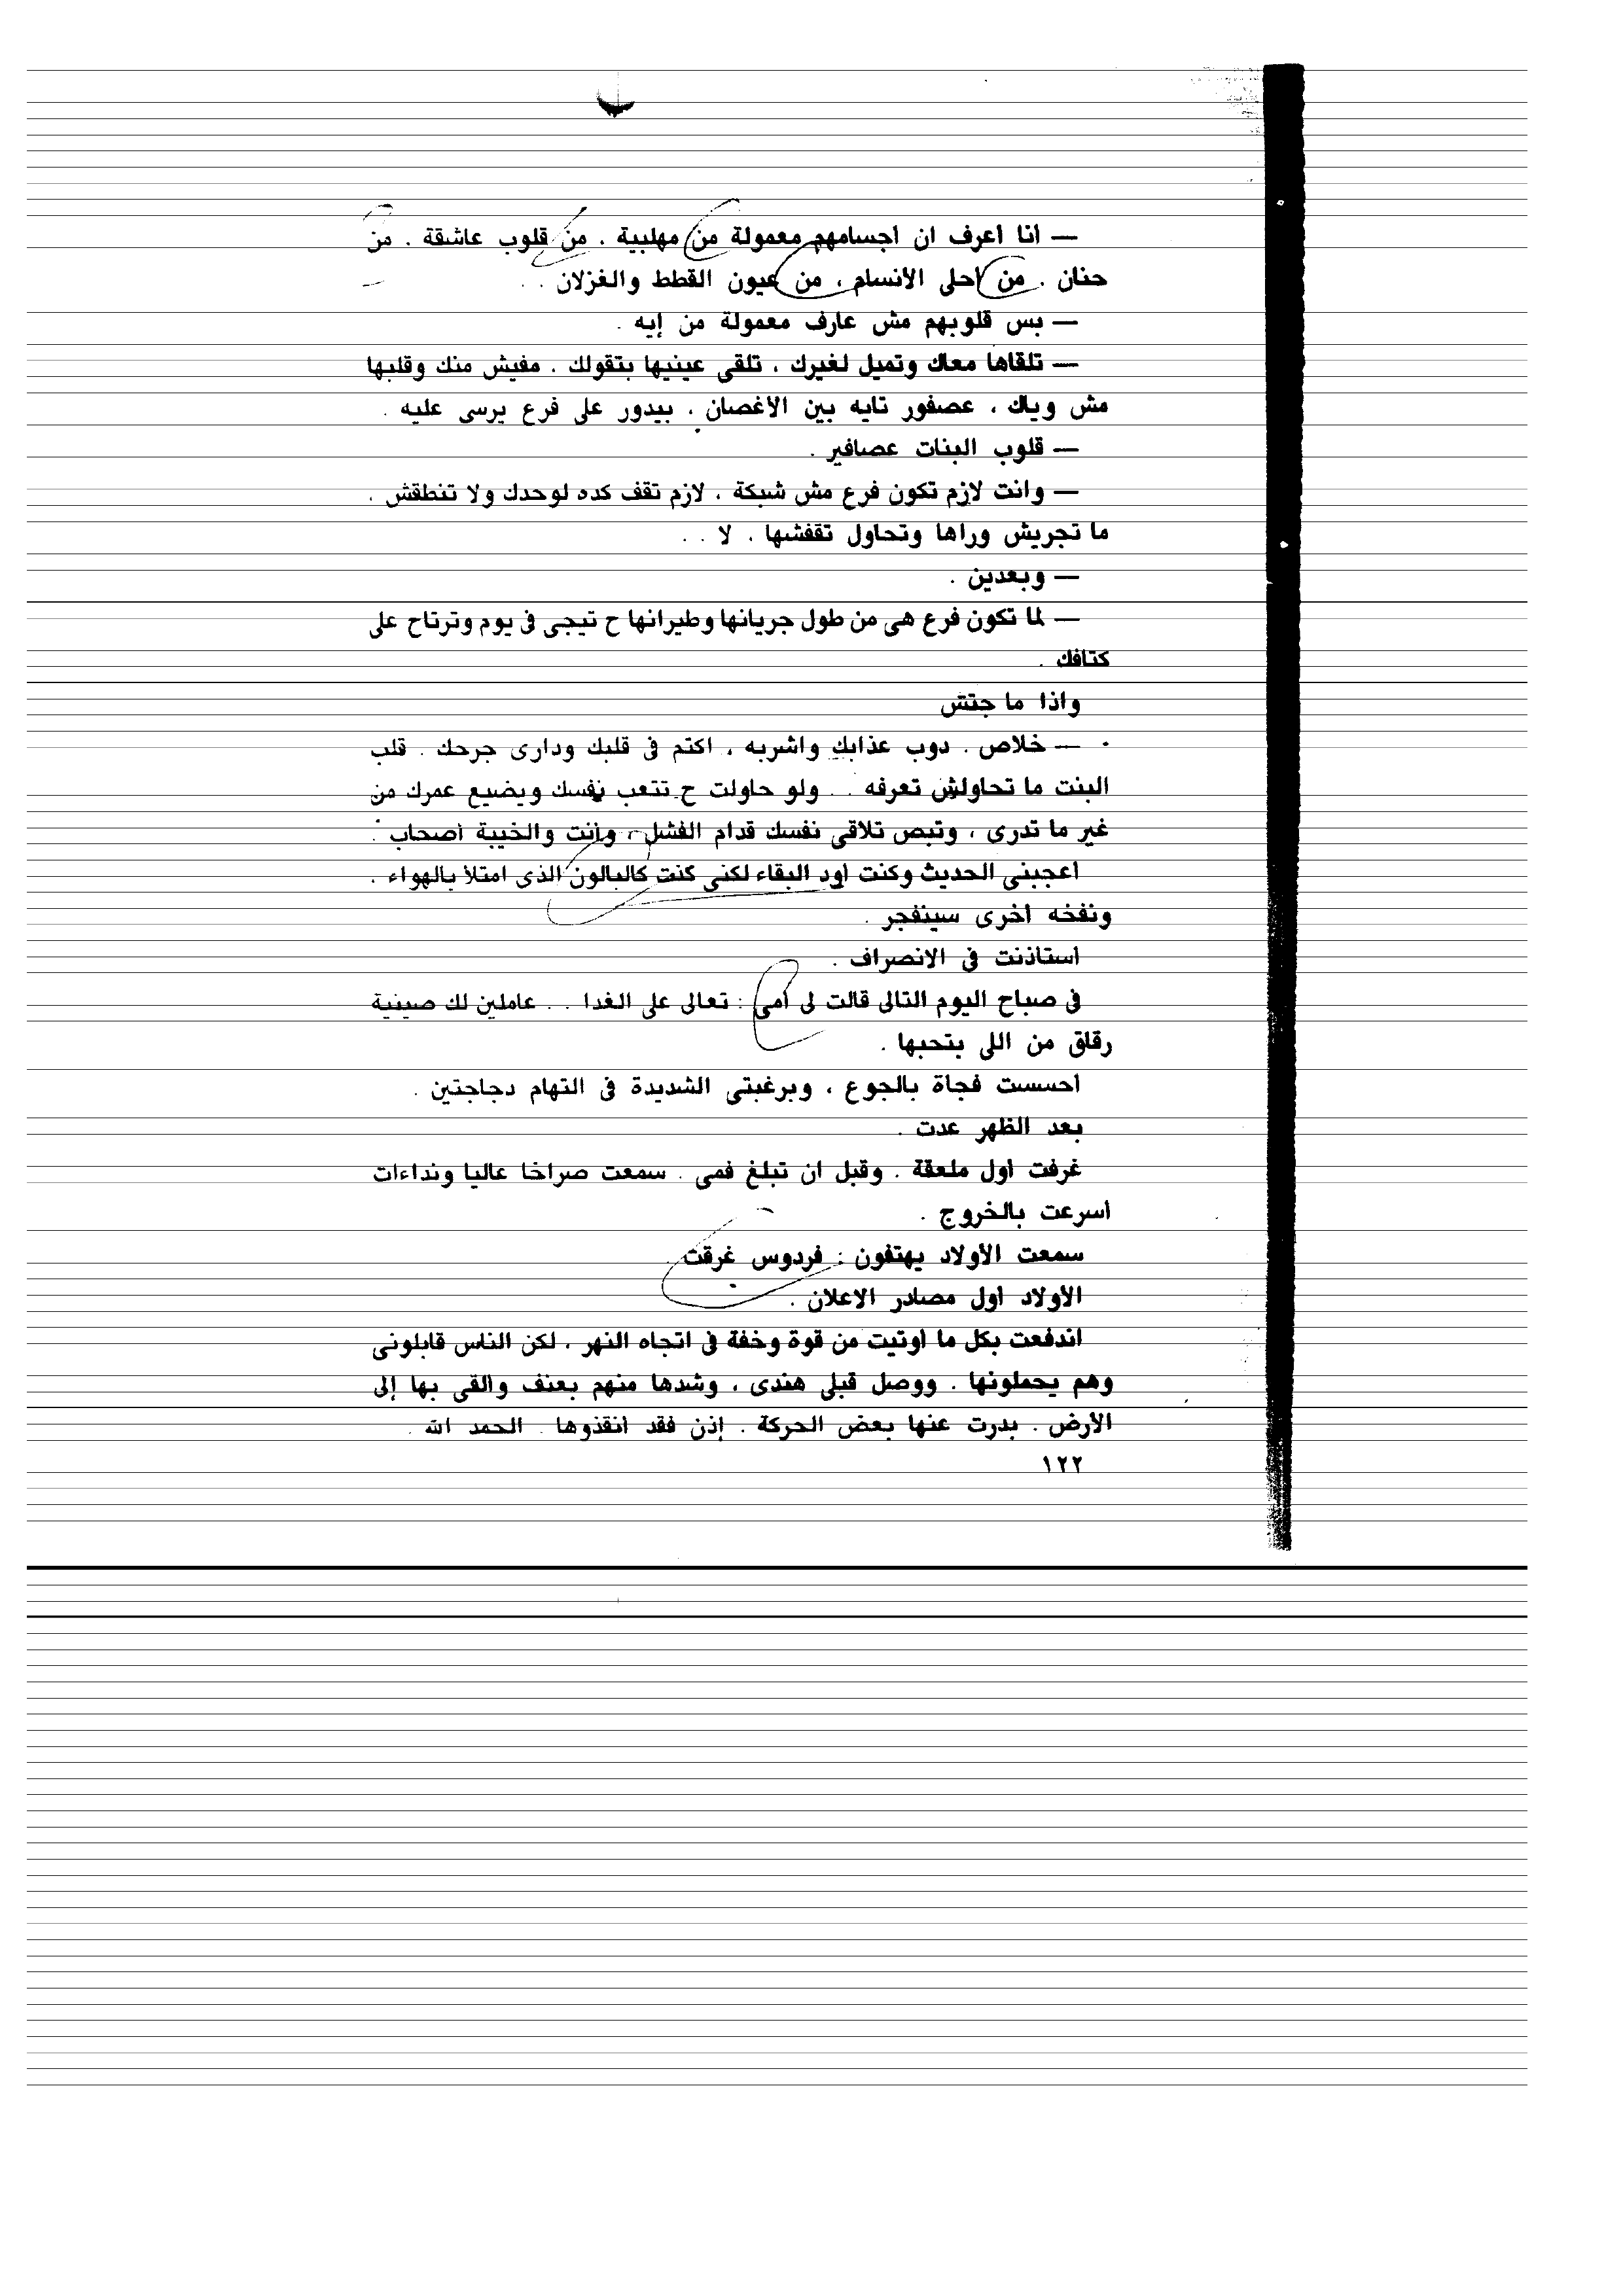 — انا اعرف ان اجسامهم معمولة من مهلبية . من قلوب عاشقة . من
حنان . من احلى الأنسام ، من عيون القطط والغزلان . .
— بس قلوبهم مش عارف معمولة من إيه .
— تلقاها معاك وتميل لغيرك ، تلقى عينيها بتقولك . مفيش منك وقلبها
مش وياك ، عصفور تايه بين الأغصان ، بيدور على فرع يرسى عليه .
— قلوب البنات عصافير .
— وانت لازم تكون فرع مش شبكة ، لازم تقف كده لوحدك ولا تنطقش .
ما تجريش وراها وتحاول تقفشها . لا . .
— وبعدين .
— لما تكون فرع هى من طول جريانها وطيرانها ح تيجى فى يوم وترتاح على
كتافك .
واذا ما جتش
— خلاص . دوب عذابك واشربه ، اكتم فى قلبك ودارى جرحك . قلب
البنت ما تحاولش تعرفه . . ولو حاولت ح تتعب نفسك ويضيع عمرك من
غير ما تدرى ، وتبص تلاقى نفسك قدام الفشل ، وانت والخيبة أصحاب .
اعجبنى الحديث وكنت اود البقاء لكنى كنت كالبالون الذى امتلأ بالهواء .
ونفخه اخرى سينفجر .
استاذنت فى الانصراف .
فى صباح اليوم التالى قالت لى أمى : تعالى على الغدا . . عاملين لك صينية
رقاق من اللى بتحبها .
احسست فجاة بالجوع ، وبرغبتى الشديدة فى التهام دجاجتين .
بعد الظهر عدت .
غرفت اول ملعقة . وقبل ان تبلغ فمى . سمعت صراخا عاليا ونداءات
اسرعت بالخروج .
سمعت الأولاد يهتفون : فردوس غرقت .
الأولاد اول مصادر الاعلان .
اندفعت بكل ما اوتيت من قوة وخفة فى اتجاه النهر ، لكن الناس قابلونى
وهم يحملونها . ووصل قبلى هندى ، وشدها منهم بعنف والقى بها إلى
الأرض . بدرت عنها بعض الحركة . إذن فقد انقذوها . الحمد الله .
١٢٢